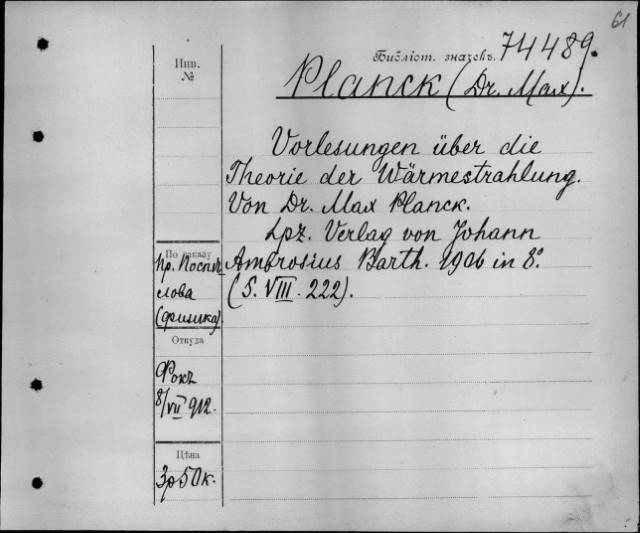 61
Библіот. значекъ. 74489.
Инв.
№
Planck (Dr. Max).
Vorlesungen über die
Theorie der Wärmestrahlung.
Von Dr. Max Planck.
Lpz. Verlag von Johann
Ambrosius Barth. 1906 in 8°.
(S. VIII. 222).
По заказу
Пр. Поспѣ
лова
(физика)
Откуда
Фокъ
8/VII 912.
Цѣна
3р 50к.